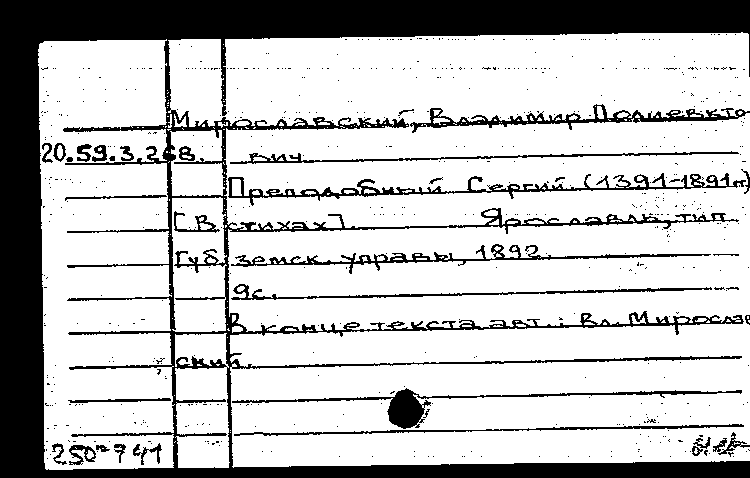 Мирославский, Владимир Полиевкто-
20.59.3.268. вич.
Преподобный Сергий. (1391-1891гг)
[В стихах]. Ярославль, тип.
Губ. земск. управы, 1892.
9с.
В конце текста авт.: Вл. Мирослав
ский.
250-741